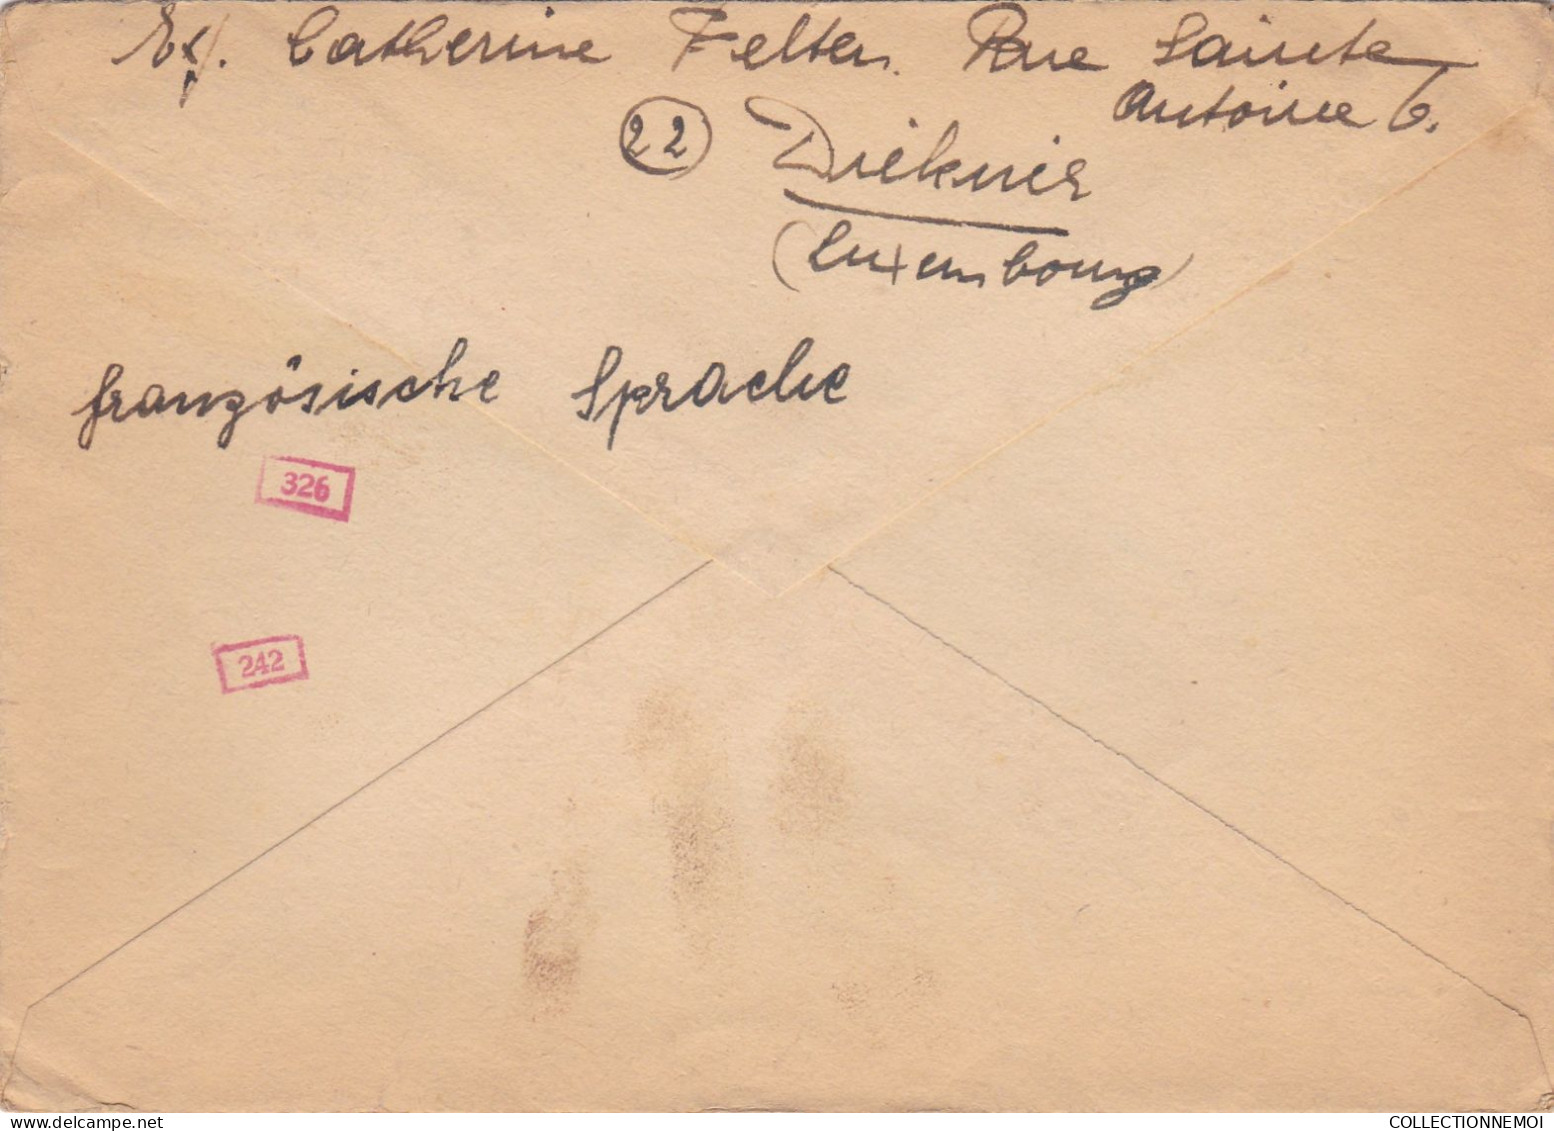 Exp. Catherine Felten. Rue Sainte
Antoine 6.
22 Diekirch
(Luxembourg)
französische Sprache
326
242
COLLECTIONNEMOI